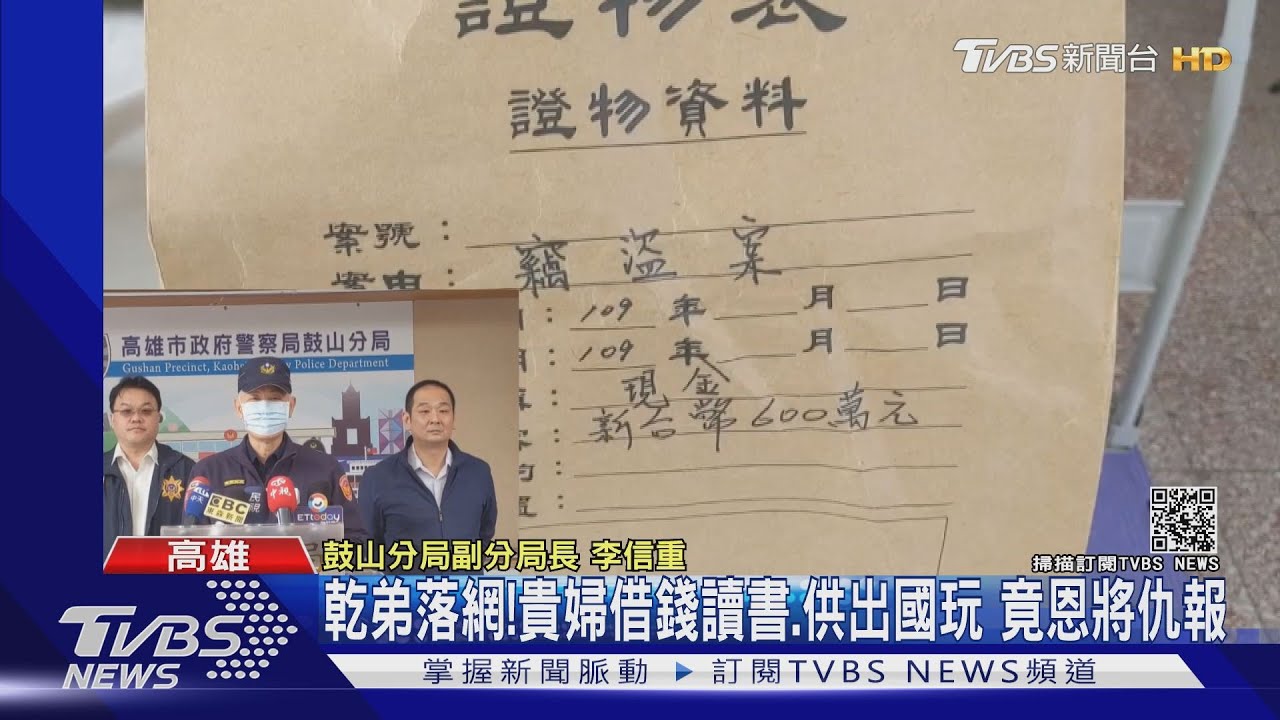 證物袋
TVBS新聞台 HD
證物資料
案號：
案由： 竊盜案
109年 月 日
109年 月 日
現金
新台幣600萬元
高雄市政府警察局鼓山分局
Gushan Precinct, Police Department
中天
EBC
東森新聞
民視
中視
ETtoday
高雄
鼓山分局副分局長 李信重
掃描訂閱TVBS NEWS
乾弟落網!貴婦借錢讀書.供出國玩 竟恩將仇報
TVBS
NEWS
掌握新聞脈動 訂閱TVBS NEWS頻道